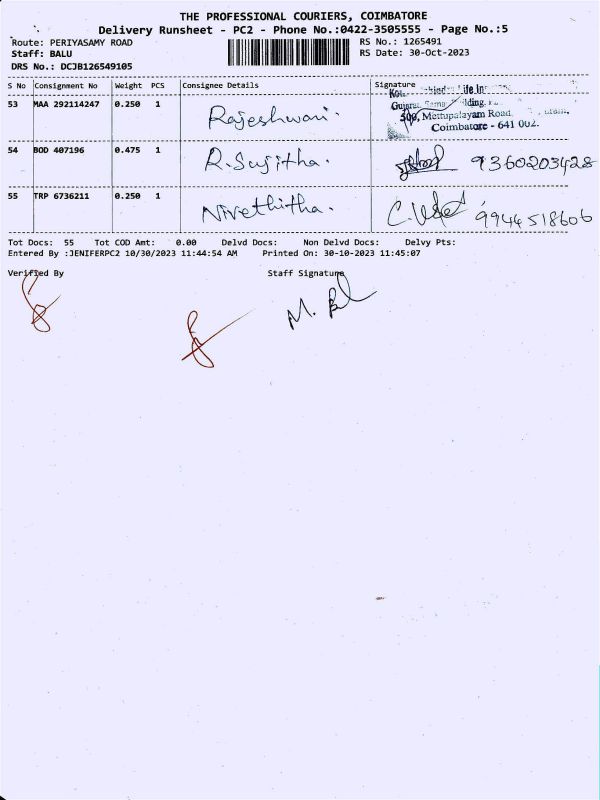 THE PROFESSIONAL COURIERS, COIMBATORE
Delivery Runsheet - PC2 - Phone No.:0422-3505555 - Page No.:5
Route: PERIYASAMY ROAD RS No.: 1265491
Staff: BALU RS Date: 30-Oct-2023
DRS No.: DCJB126549105
S No Consignment No Weight PCS Consignee Details Signature
53 MAA 292114247 0.250 1 Rajeshwari.
Life
Gujarat Building,
509, Mettupalayam Road,
Coimbatore - 641 002.
54 BOD 407196 0.475 1 R.Sujitha. 9360203428
55 TRP 6736211 0.250 1 Nivethitha. 9944518606
Tot Docs: 55 Tot COD Amt: 0.00 Delvd Docs: Non Delvd Docs: Delvy Pts:
Entered By :JENIFERPC2 10/30/2023 11:44:54 AM Printed On: 30-10-2023 11:45:07
Verified By Staff Signature